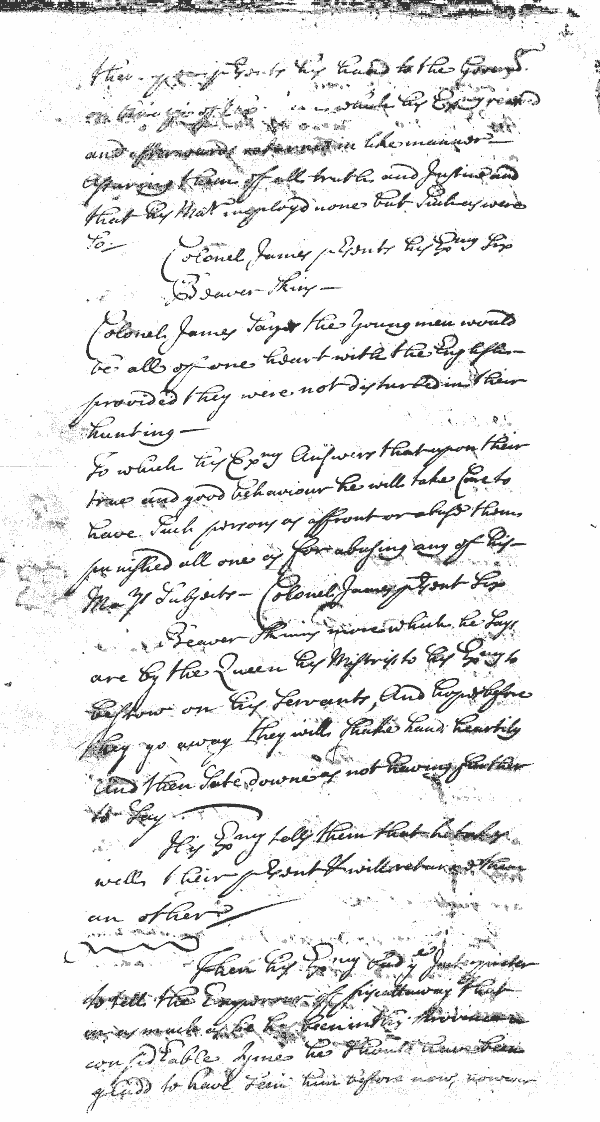 then presents his hand to the Governr
which his Exncy
and afterwards returned in like manner
assuring them of all truth and Justice and
that his Maty imployd none but Such as were
So
Colonel James presents his Exncy Six
Beaver Skins
Colonel James Says the Young men would
be all of one heart with the English
provided they were not disturbed in their
hunting
To which his Exncy Answers that upon their
true and good behaviour he will take Care to
have Such persons as affront or abuse them
punished all one as for abusing any of his
Matys Subjects Colonel James present Six
Beaver Skinns more which he Says
are by the Queen his Mistris to his Exncy to
bestow on his Servants, And hopes before
they go away they will Shake hand heartily
and then Sate downe as not having further
to Say
His Exncy tells them that he takes
well their present & will returne them
an other
Then his Exncy bad ye Interpreter
to tell the Emperour of Piscattaway that
in as much as he has been in this Province a
considerable tyme he Should have been
gladd to have Seen him before now, however